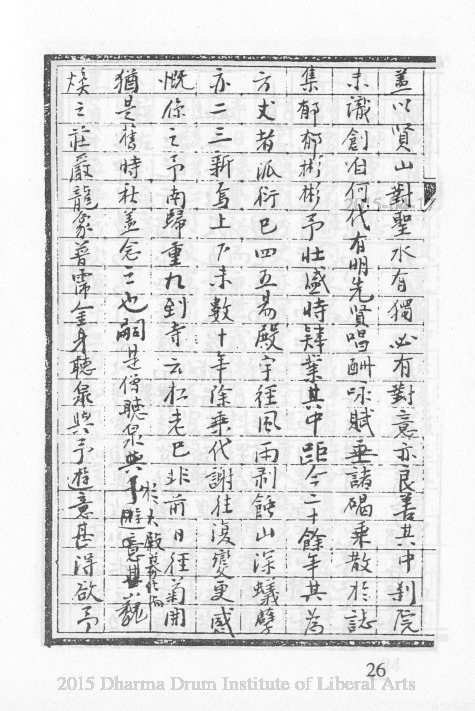 蓋以賢山對聖水有獨必有對意亦良善其中剎院
未識創自何代有明先賢唱酬咏賦垂諸碣乘散於誌
集郁郁彬彬予壯盛時肄業其中距今二十餘年其為
方丈者派衍已四五易殿宇徑風雨剥蝕山深蟻孽
亦二三新焉上下未數十年除乘代謝往復變更感
慨係之予南歸重九到寺云松老已非前日徑菊開
猶是舊時秋蓋念之也嗣是僧聽泉與予遊意甚
於大殿
煥之莊嚴龍象普霈金身聽泉與予遊意甚得欲予
26
2015 Dharma Drum Institute of Liberal Arts